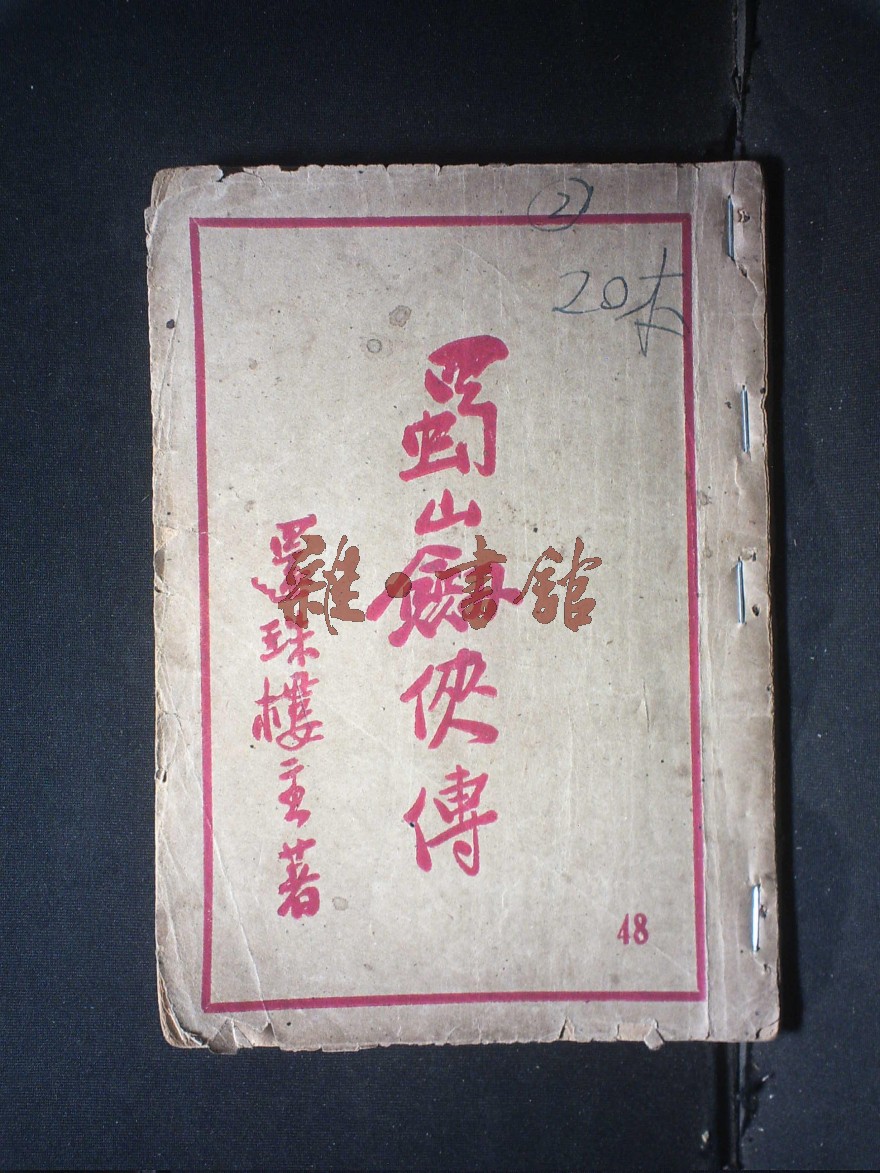 ②
20本
蜀山劍俠傳
還珠樓主著
48
雜·書館